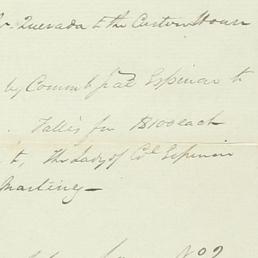 Quesada to the Custom House
by Comm & pd Espinar to
Tallis for $100 each
to, The Lady of Col Espinar
Martinez —
No 2